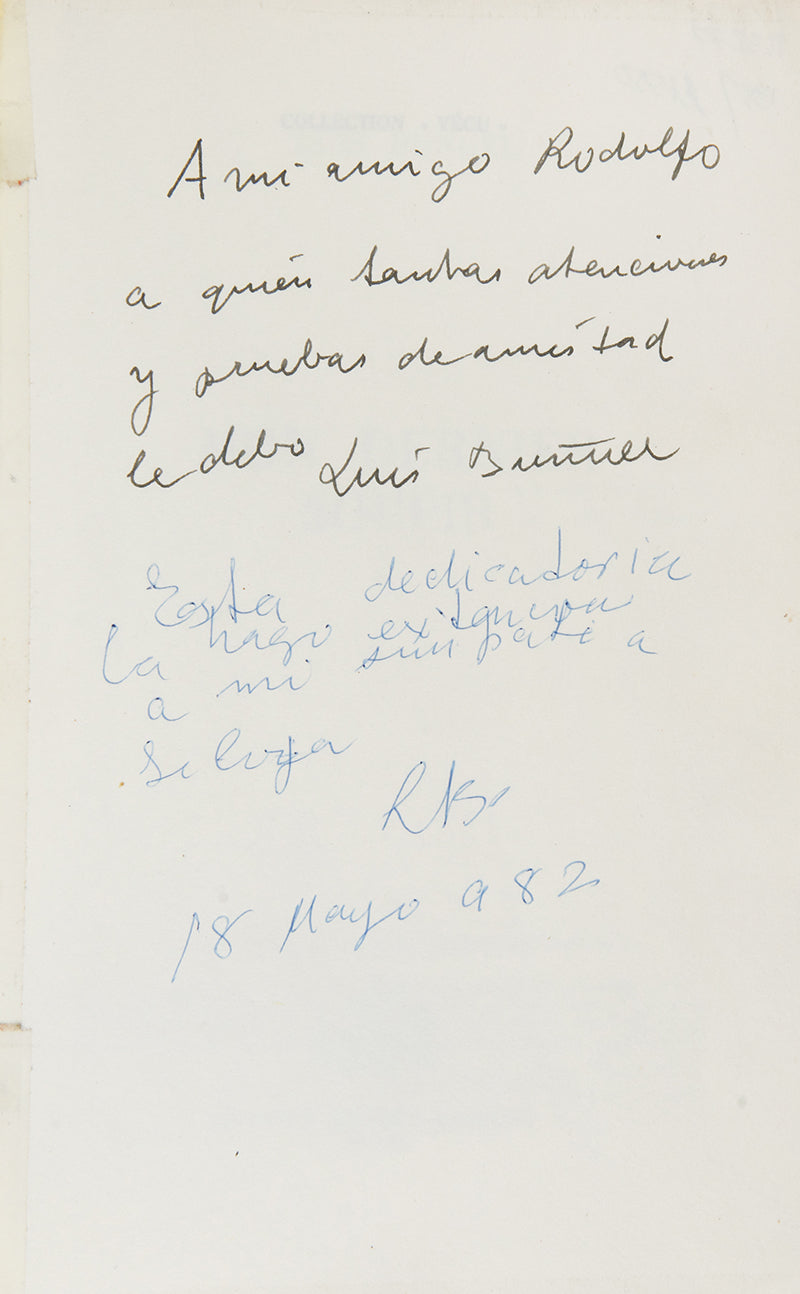 COLLECTION « VÉCU »
A mi amigo Rodolfo
a quién tantas atenciones
y pruebas de amistad
le debo Luis Buñuel
Esta dedicatoria
la hago
a mi simpatia
18 Mayo 982